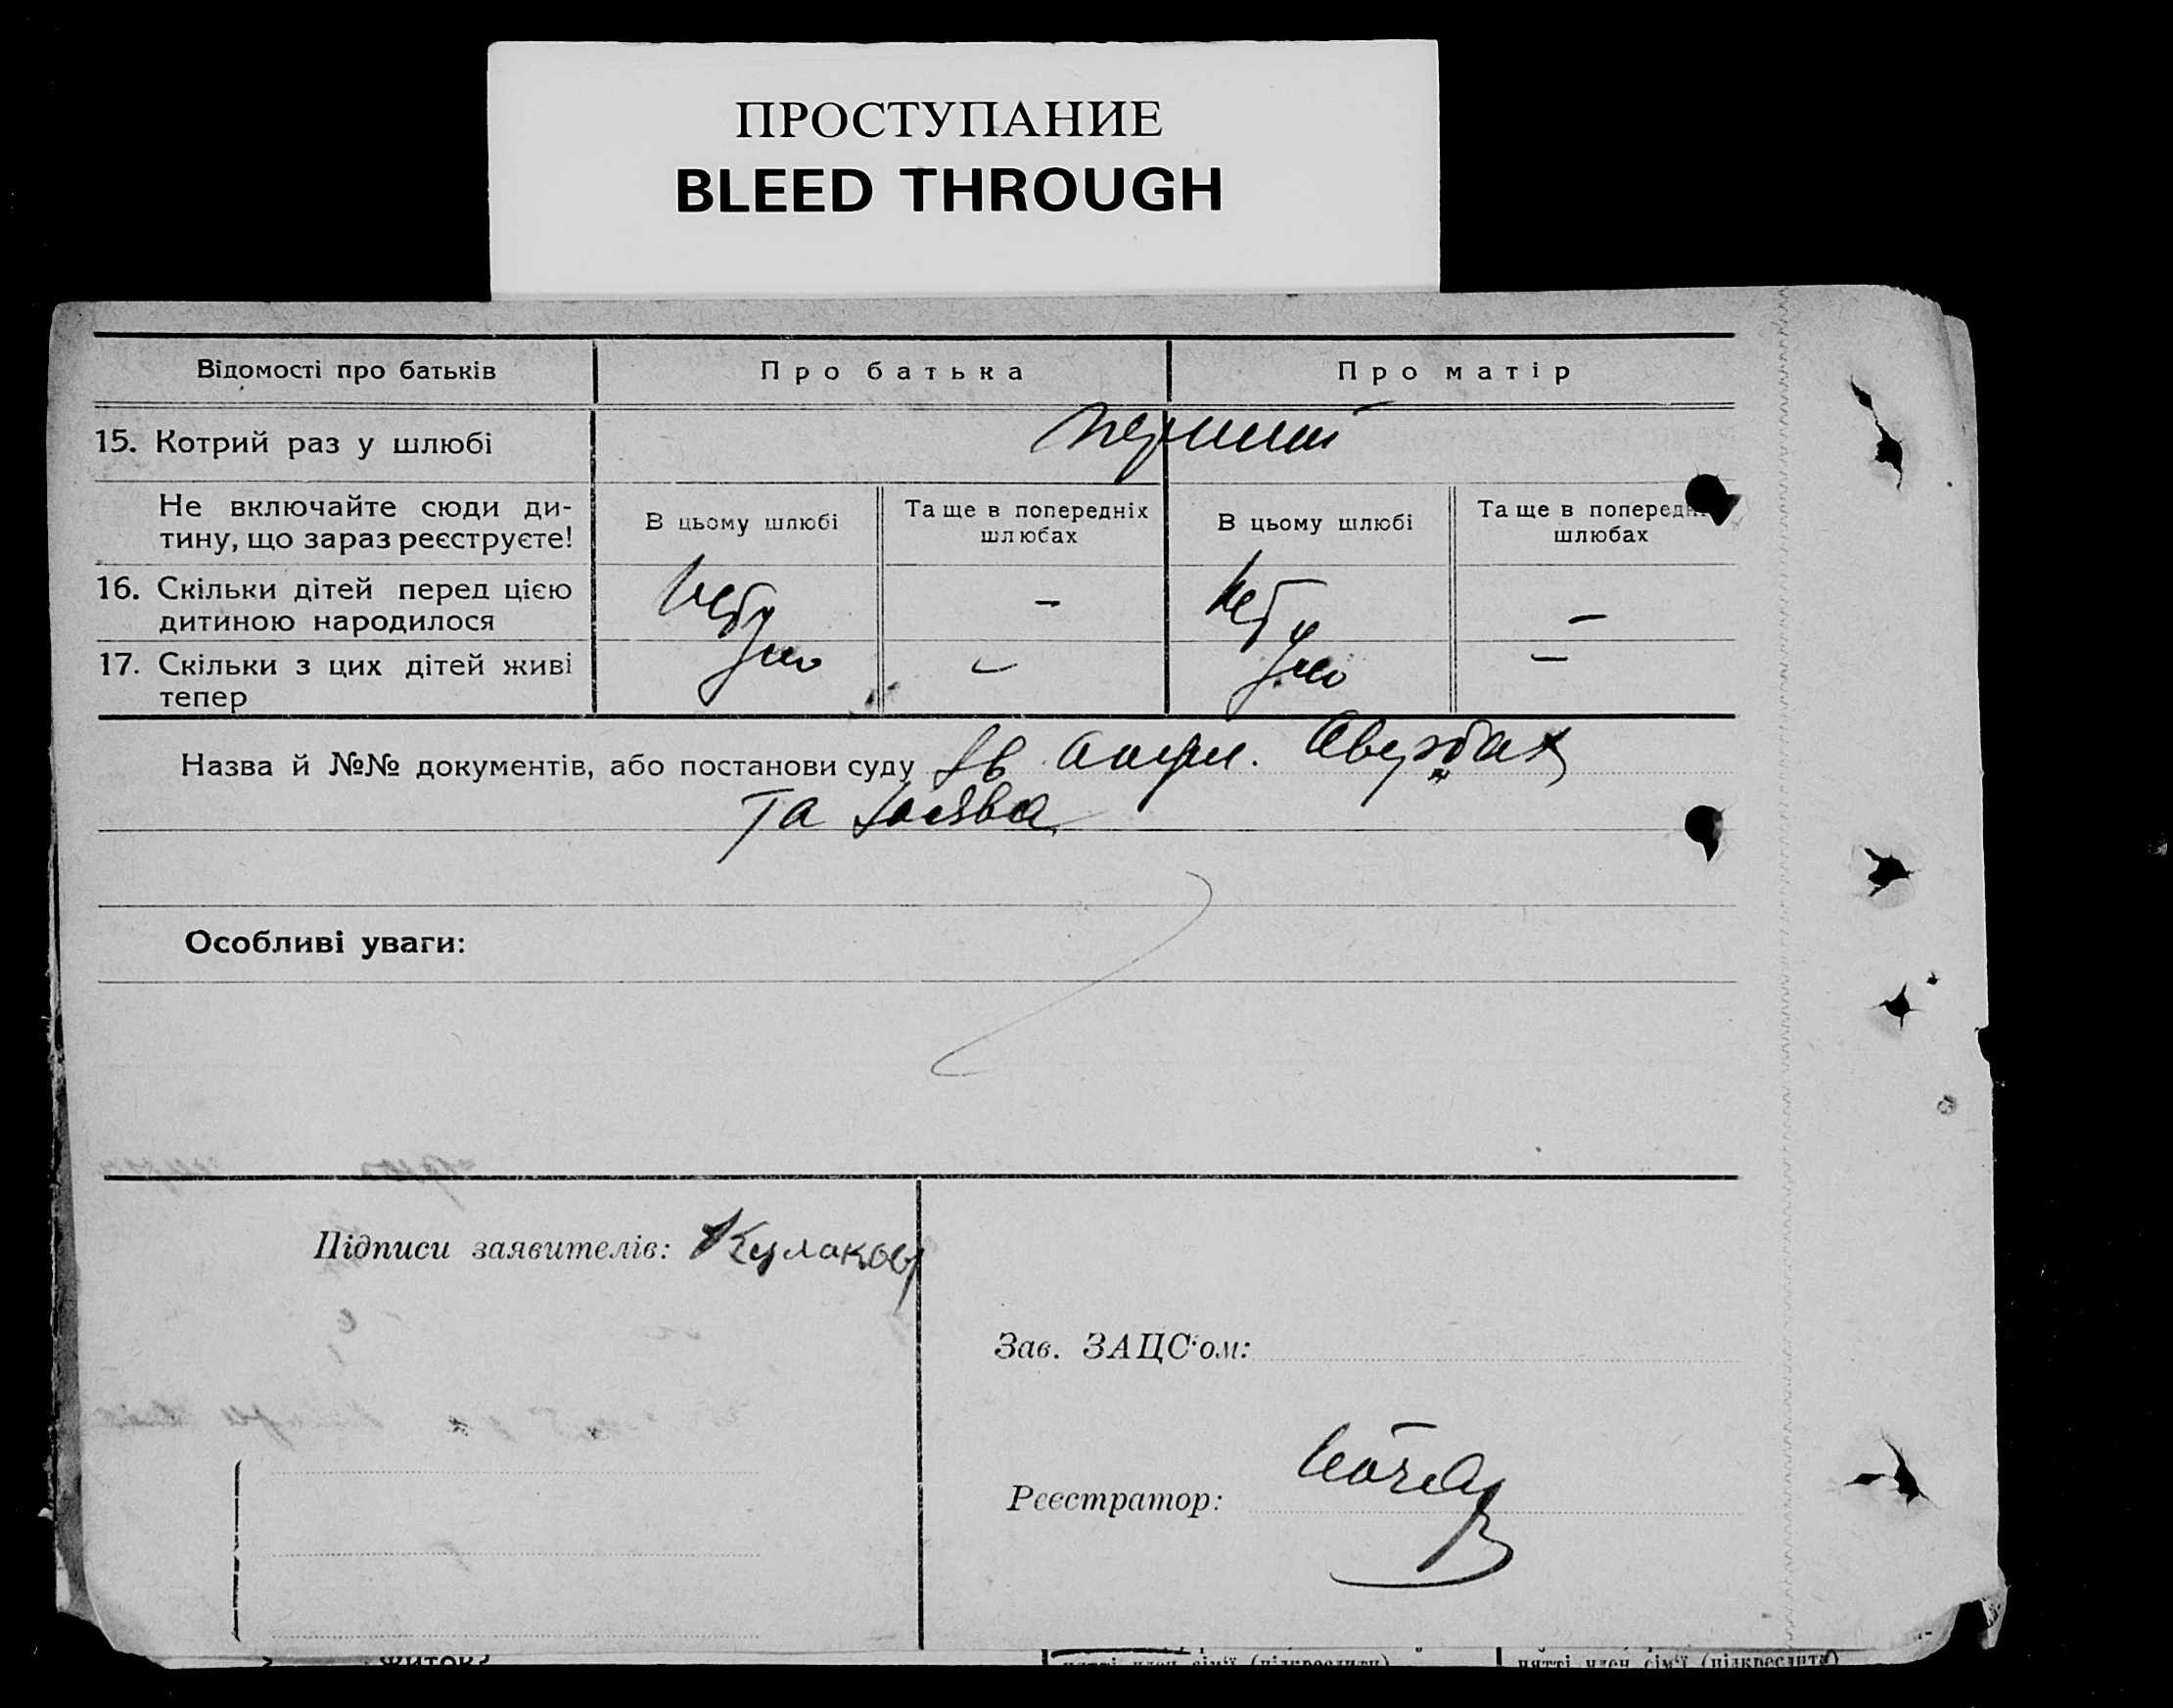 ПРОСТУПАНИЕ
BLEED THROUGH
Відомості про батьків
Про батька
Про матір
15. Котрий раз у шлюбі
перший
Не включайте сюди ди-
тину, що зараз реєструєте!
В цьому шлюбі
Та ще в попередніх
шлюбах
В цьому шлюбі
Та ще в поперед
шлюбах
16. Скільки дітей перед цією
дитиною народилося
небу
–
небу
–
17. Скільки з цих дітей живі
тепер
ло
–
ло
–
Назва й №№ документів, або постанови суду
Авербах
та
Особливі уваги:
Підписи заявителів: Кулаков
Зав. ЗАЦС'ом:
Реєстратор:
житок
член сім'ї (підкреслити)
член сім'ї (підкреслити)